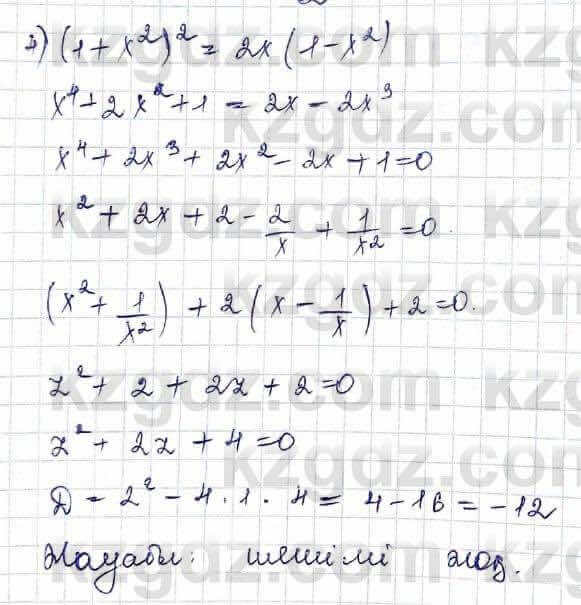 4) (1+x²)² = 2x(1-x²)
x⁴+2x²+1 = 2x-2x³
x⁴+2x³+2x²-2x+1=0
x²+2x+2-2/x+1/x²=0.
(x²+1/x²)+2(x-1/x)+2=0.
z²+2+2z+2=0
z²+2z+4=0
D=2²-4·1·4=4-16=-12
Жауабы: шешімі жоқ.